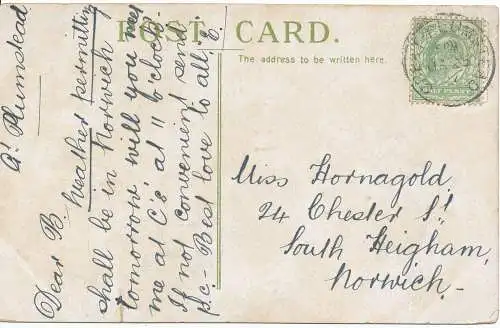 POST CARD.
The address to be written here.
Gt Plumstead
Dear B. Weather permitting
shall be in Norwich
tomorrow will you meet
me at C's at 11 o'clock
If not convenient send
p.c - Best love to all E.
Miss Hornagold
24 Chester St
South Heigham,
Norwich -
HALF PENNY